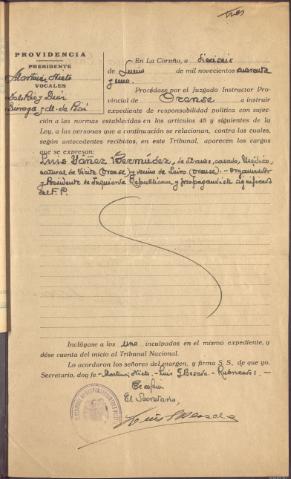 PROVIDENCIA
PRESIDENTE
VOCALES
En La Coruña, a
de Junio de mil novecientos cuarenta
y uno.
Procédase por el Juzgado Instructor Pro-
vincial de Orense a instruir
expediente de responsabilidad política con suje-
ción a las normas establecidas en los artículos 45 y siguientes de la
Ley, a las personas que a continuación se relacionan, contra los cuales,
según antecedentes recibidos, en este Tribunal, aparecen los cargos
que se expresan:
Luis Yáñez Bermúdez, de años, casado, Médico,
natural de (Orense) y vecino de Leiro (Orense): organizador
y Presidente de Izquierda Republicana y propagandista significado
del F.P.
Inclúyase a los uno inculpados en el mismo expediente, y
dése cuenta del inicio al Tribunal Nacional.
Lo acordaron los señores del margen, y firma S. S. de que yo,
Secretario, doy fe. Luis Rubricados.
Es copia
El Secretario,